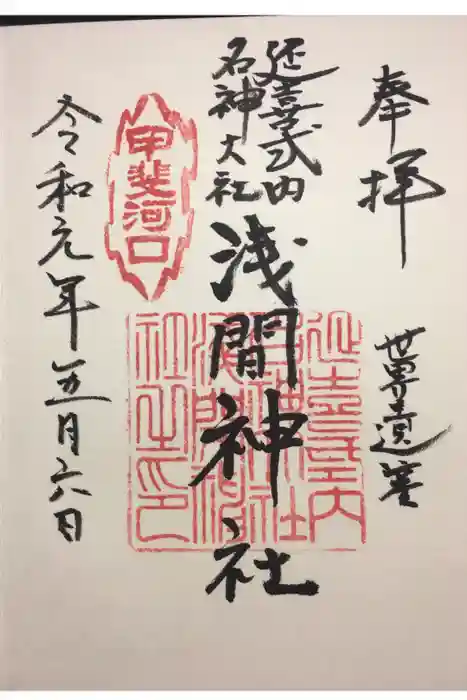 奉拝
世界遺産
延喜式内
名神大社
浅間神社
甲斐河口
延喜式内
名神大社
浅間神
社之印
令和元年五月六日